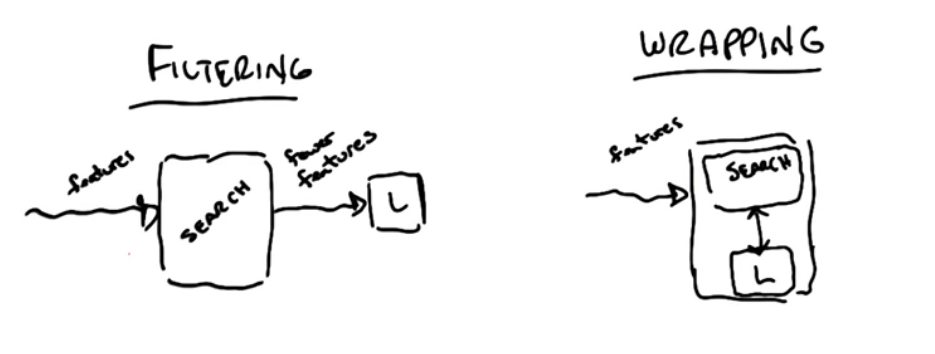 FILTERING
features
SEARCH
fewer
features
L
WRAPPING
features
SEARCH
L